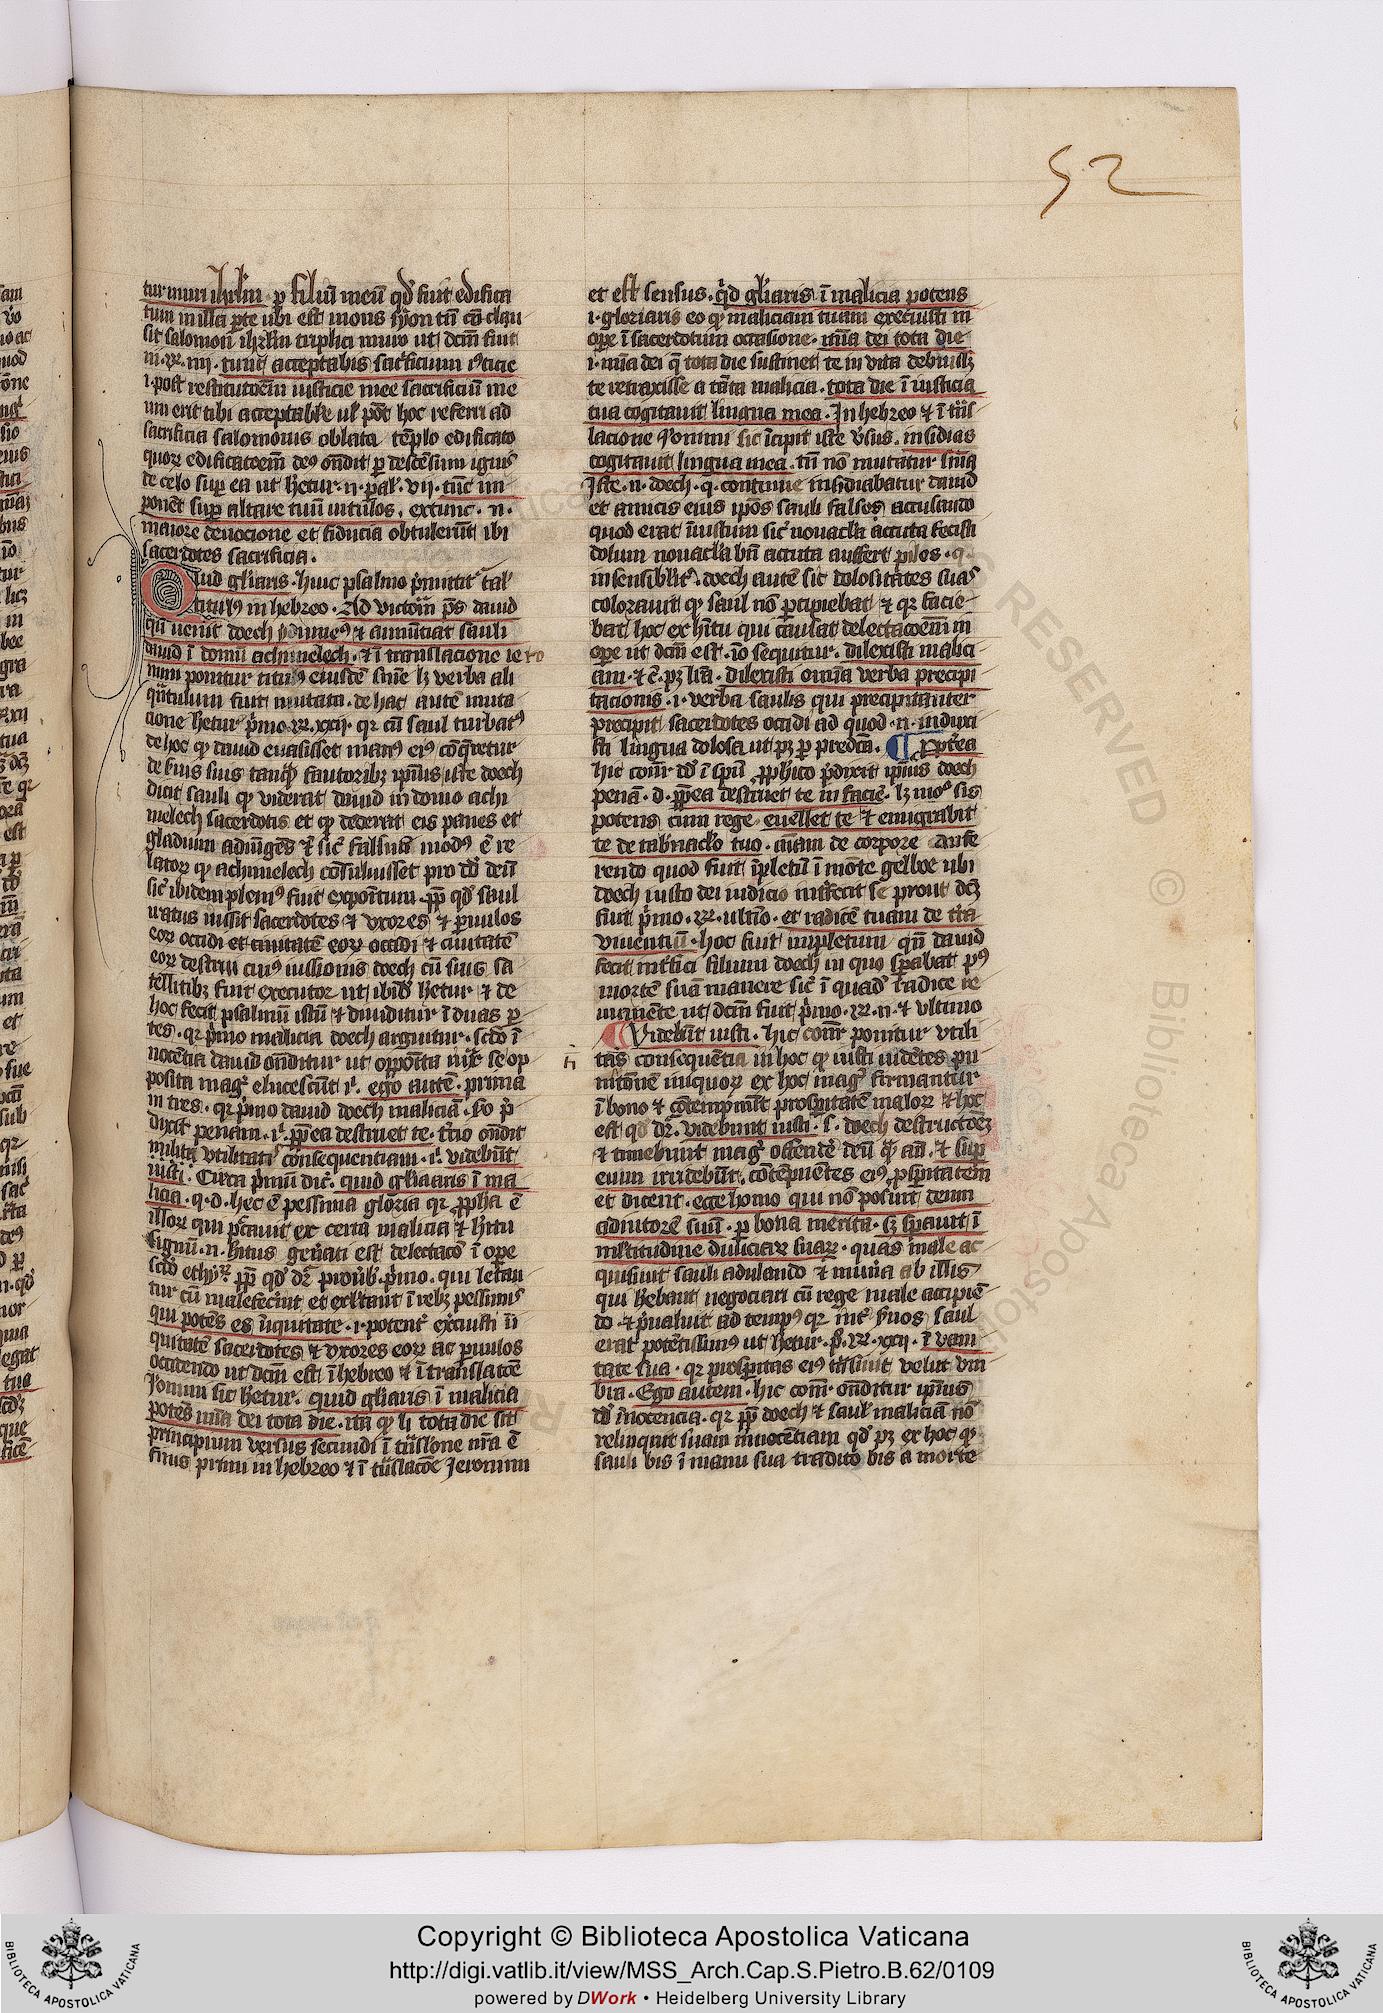 52
tur muri ihrlm p filiū meū qd' fuit edifica
tum in illa pte ubi est mons syon tn̄ cō clau
sit salomon ihrlm triplici muro ut dcm̄ fuit
tunc acceptabis sacrificium iusticie
i. post restitutoēm iusticie mee sacrificiū me
um erit tibi acceptabile ul' pōt hoc referri ad
sacrificia salomonis oblata templo edificato
quoꝝ edificatoēm deꝰ ondit p descēsum ignis
de celo sup ea ut hetur .ii. pal'. vii. tūc im
ponēt sup altare tuū uitulos. extunc .n.
maiore deuocione et fiducia obtulerūt ibi
sacerdotes sacrificia.
Quid gl'iaris. huic psalmo p̄mittit' tal'
titulꝰ in hebreo. Ad victoriā ps dauid
qn̄ uenit doech ydumeꝰ & annūciat sauli
dauid ī domū achimelech. & ī translacione iero
nimi ponitur titulꝰ eiusdē snīe lꝫ verba ali
quintulum fiut mutata. de hac autē muta
cione hetur p̄mo .xxii. qꝛ cū saul turbatꝰ
de hoc ꝙ dauid euasisset manꝰ eiꝰ cōq̄retur
de suis tanꝙ fautoribꝫ ipsius iste doech
dicit sauli ꝙ viderat dauid in domo achi
melech sacerdotis et ꝙ dederat eis panes et
gladium
latoꝝ ꝙ achimelech cōsuluisset pro dd deū
sic' ibidem pleniꝰ fuit expositum. ꝓp qd' saul
iratus iussit sacerdotes & vxores & paruulos
eoꝝ occidi et ciuitatē eoꝝ occidi & ciuitatē
eoꝝ destrui cuiꝰ iussionis doech cū suis sa
tellitibꝫ fuit executor ut ibid' hetur & de
hoc fecit psalmū istū & diuiditur ī duas p
tes. qꝛ p̄mo malicia doech arguitur. scdo ī
nocētia dauid ondit ur ut opposita iuxͣ se op
posita magꝰ elucescūt i'. ego autē. prima
in tres. qꝛ p̄mo dauid doech maliciā. so p̄
dixit penam. i'. ꝓpt'ea destruet te. t'cio ondit
utilitatis consequentiam. i'. videbūt
iusti. Circa p̄mū dic'. quid gl'iaris ī ma
licia. q.d. hec ē pessima gloria qꝛ ꝓpria ē
illoꝝ qui pccauit ex certa malicia & hitu
signū .n. hitus gen'ati est delectaco ī ope
scdo ethicoꝝ ꝓp qd' dr' prouerb'. p̄mo. qui letan
tur cū malefecerint et exultant ī rebꝫ pessimis
qui potēs es ī iniquitate .i. potent'
quitatē sacerdotes & vxores eoꝝ ac puulos
occidendo ut dcm̄ est. ī hebreo & ī translatoē
Jonimi sic hetur. quid gl'iaris ī malicia
potēs mīa dei tota die. ita ꝙ li tota die sit
principium versus secundi ī trāslone nr̄a ē
finis primi in hebreo & ī trāslatoē Jeronimi
et est sensus. quid gl'iaris ī malicia potens
.i. gloriaris eo ꝙ maliciam tuam executi in
ope ī sacerdotum occasione. mīa dei tota die
.i. mīa dei q̄ tota die sustinet te in vita debuissꝫ
te retraxisse a tāta malicia. tota die ī iusticia
tua cogitauit lingua mea. In hebreo & ī trās
lacione Jonimi sic īcipit iste v'sus. insidias
cogitauit lingua mea. tn̄ nō mutatur snīa
Iste .n. doech .q. continue insidiabatur dauid
et amicis eius ipsos sauli falses accusando
quod erat īiustum sic' nouacla accuta fecisti
dolum nouacla bn̄ accuta auffert pilos .q.
insensibilit'. doech autē sic dolositates suas
colorauit ꝙ saul nō pcipiebat & qꝛ facie
bat hoc ex hitu qui causat delectacōem in
ope ut dcm̄ est. iō sequitur. dilexisti malici
am. & c̄. pꝫ lr̄a. dilexisti omīa verba precipi
tacionis .i. verba saulis qui precipitanter
precipit sacerdotes occidi ad quod .n. induxi
sti lingua dolosa ut pꝫ p predcā. ¶ Propt'ea
hic cons' dd ī spū ꝓphico p̄dixit ipsius doech
penā. d. ꝓpt'ea destruet te in facie. lꝫ moꝰ sis
potens cum rege. euellet te & emigrabit
te de tab'naclo tuo. aīam de corpore aufe
rendo quod fuit īpletū ī mōte gelboe ubi
doech iusto dei iudicio int'fecit se prout dcꝫ
fuit p̄mo . ultio. et radicē tuam de t'ra
viuentiū. hoc fuit impletum qn̄ dauid
fecit int'fici filium doech in quo sperabat pꝰ
mortē suā manere sic' ī quad' radice re
uiuiscente ut dcm̄ fuit p̄mo .n. & ultimo
¶ Videbūt iusti. hic cons' ponitur vtili
tas consequētia in hoc ꝙ iusti uidētes pu
nitionē iniquoꝝ ex hoc magꝰ firmantur
ī bono & contempnūt prosperitatē maloꝝ & hoc
est qd' dr'. videbunt iusti .s. doech destructoēꝫ
& timebunt magꝰ offendē' deū ꝙ añ. & sup
eum irridebūt. contēpnentes eiꝰ prosperitatem
et dicent. ecce homo qui nō posuit deum
aditorē suū. p bona merita. sꝫ sperauit ī
multitudine diuiciaꝝ suaꝝ. quas male ac
quisiuit sauli adulando & mun'a ab illis
qui hebant negociari cū rege male accipiē
do. & p̄ualuit ad tempꝰ qꝛ int' s'uos saul
erat potētissimꝰ ut hetur .xxii. ī vani
tate sua. qꝛ prosperitas eiꝰ trāsiuit velut vm
bra. Ego autem. hic cons' onditur ipsius
dd īnocencia. qꝛ ꝓp doech & saul' maliciā nō
relinquit suam īnocētiam qd' pꝫ ex hoc ꝙ
sauli bis ī manu sua tradito bis a morte
Copyright © Biblioteca Apostolica Vaticana
http://digi.vatlib.it/view/MSS_Arch.Cap.S.Pietro.B.62/0109
powered by DWork • Heidelberg University Library
BIBLIOTECA APOSTOLICA VATICANA
BIBLIOTECA APOSTOLICA VATICANA